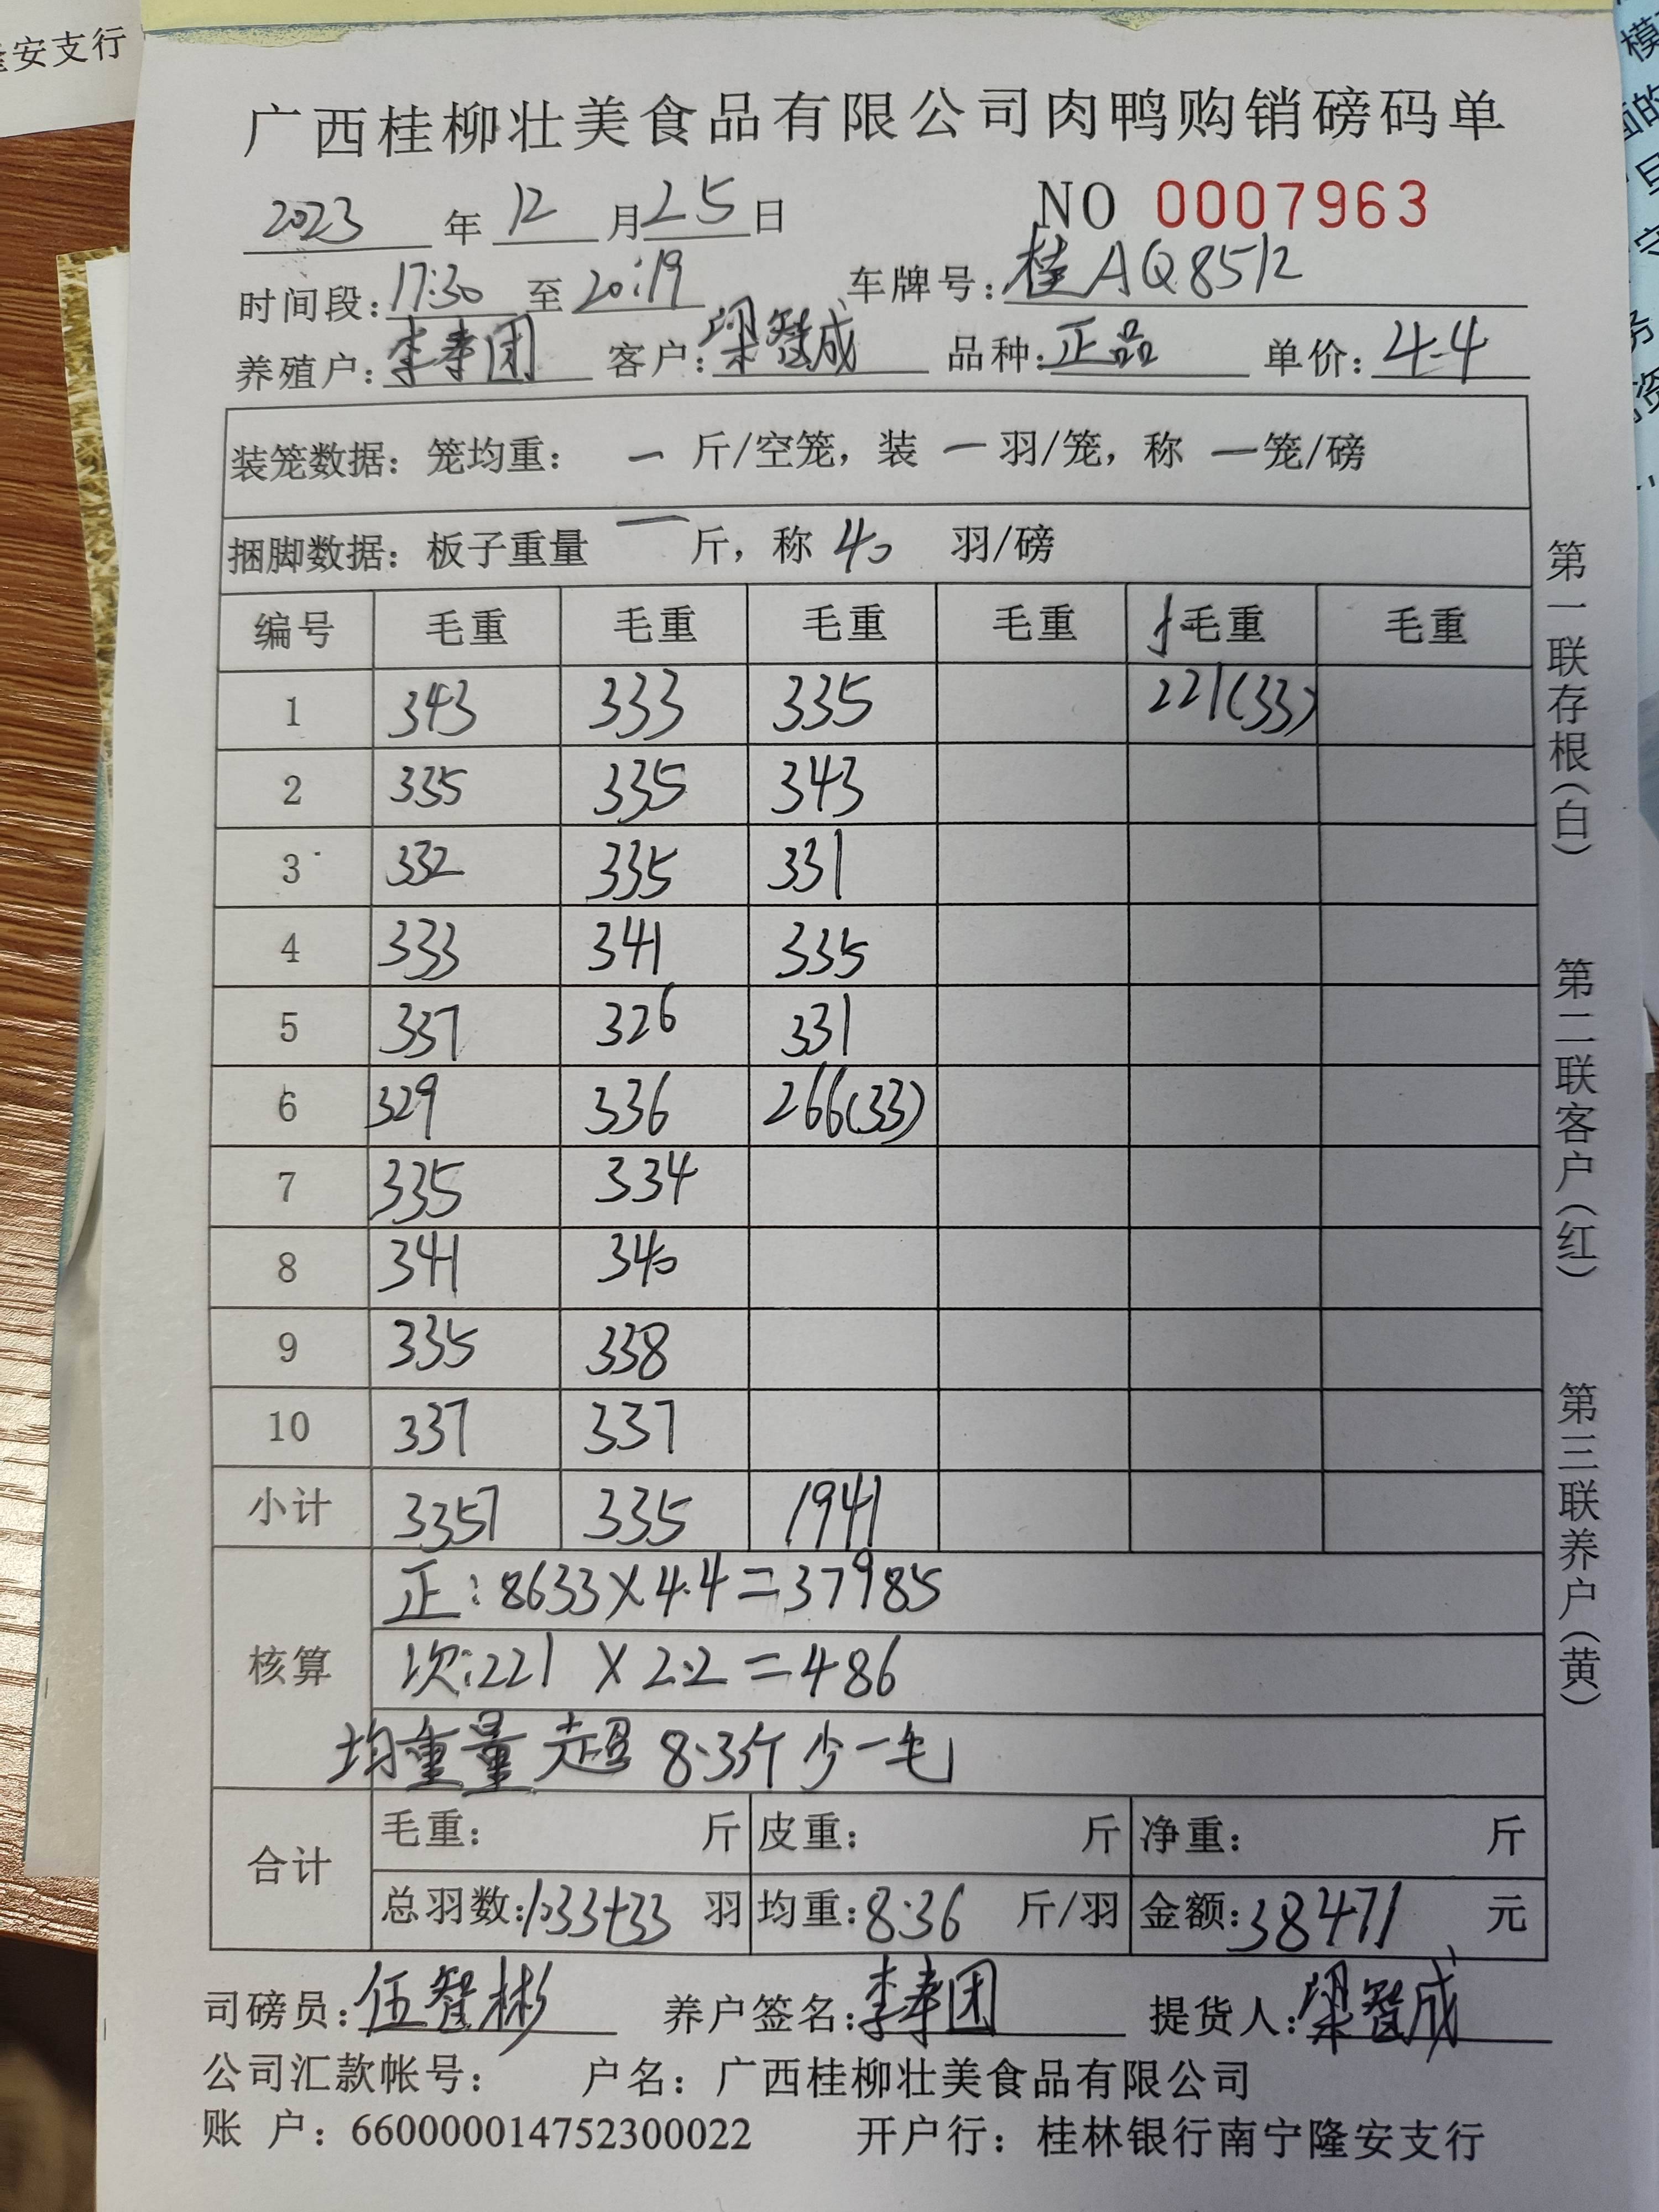 隆安支行
广西桂柳壮美食品有限公司肉鸭购销磅码单
2023 年 12 月 25 日 NO 0007963
时间段:17:30 至 20:19 车牌号:桂AQ8512
养殖户:李寿团 客户:梁智成 品种:正品 单价:4.4
装笼数据:笼均重: 一 斤/空笼,装 一 羽/笼,称 一 笼/磅
捆脚数据:板子重量 一 斤,称 40 羽/磅
编号 毛重 毛重 毛重 毛重 毛重 毛重
1 343 333 335 221(33)
2 335 335 343
3 332 335 331
4 333 341 335
5 337 326 331
6 329 336 266(33)
7 335 334
8 341 340
9 335 338
10 337 337
小计 3357 335 1941
核算
正:8633×4.4=37985
次:221 ×2.2=486
均重量超8.3斤少一毛
合计
毛重: 斤 皮重: 斤 净重: 斤
总羽数:1033+33 羽 均重:8.36 斤/羽 金额:38471 元
司磅员:伍智彬 养户签名:李寿团 提货人:梁智成
公司汇款帐号: 户名:广西桂柳壮美食品有限公司
账 户:660000014752300022 开户行:桂林银行南宁隆安支行
第一联存根(白)
第二联客户(红)
第三联养户(黄)